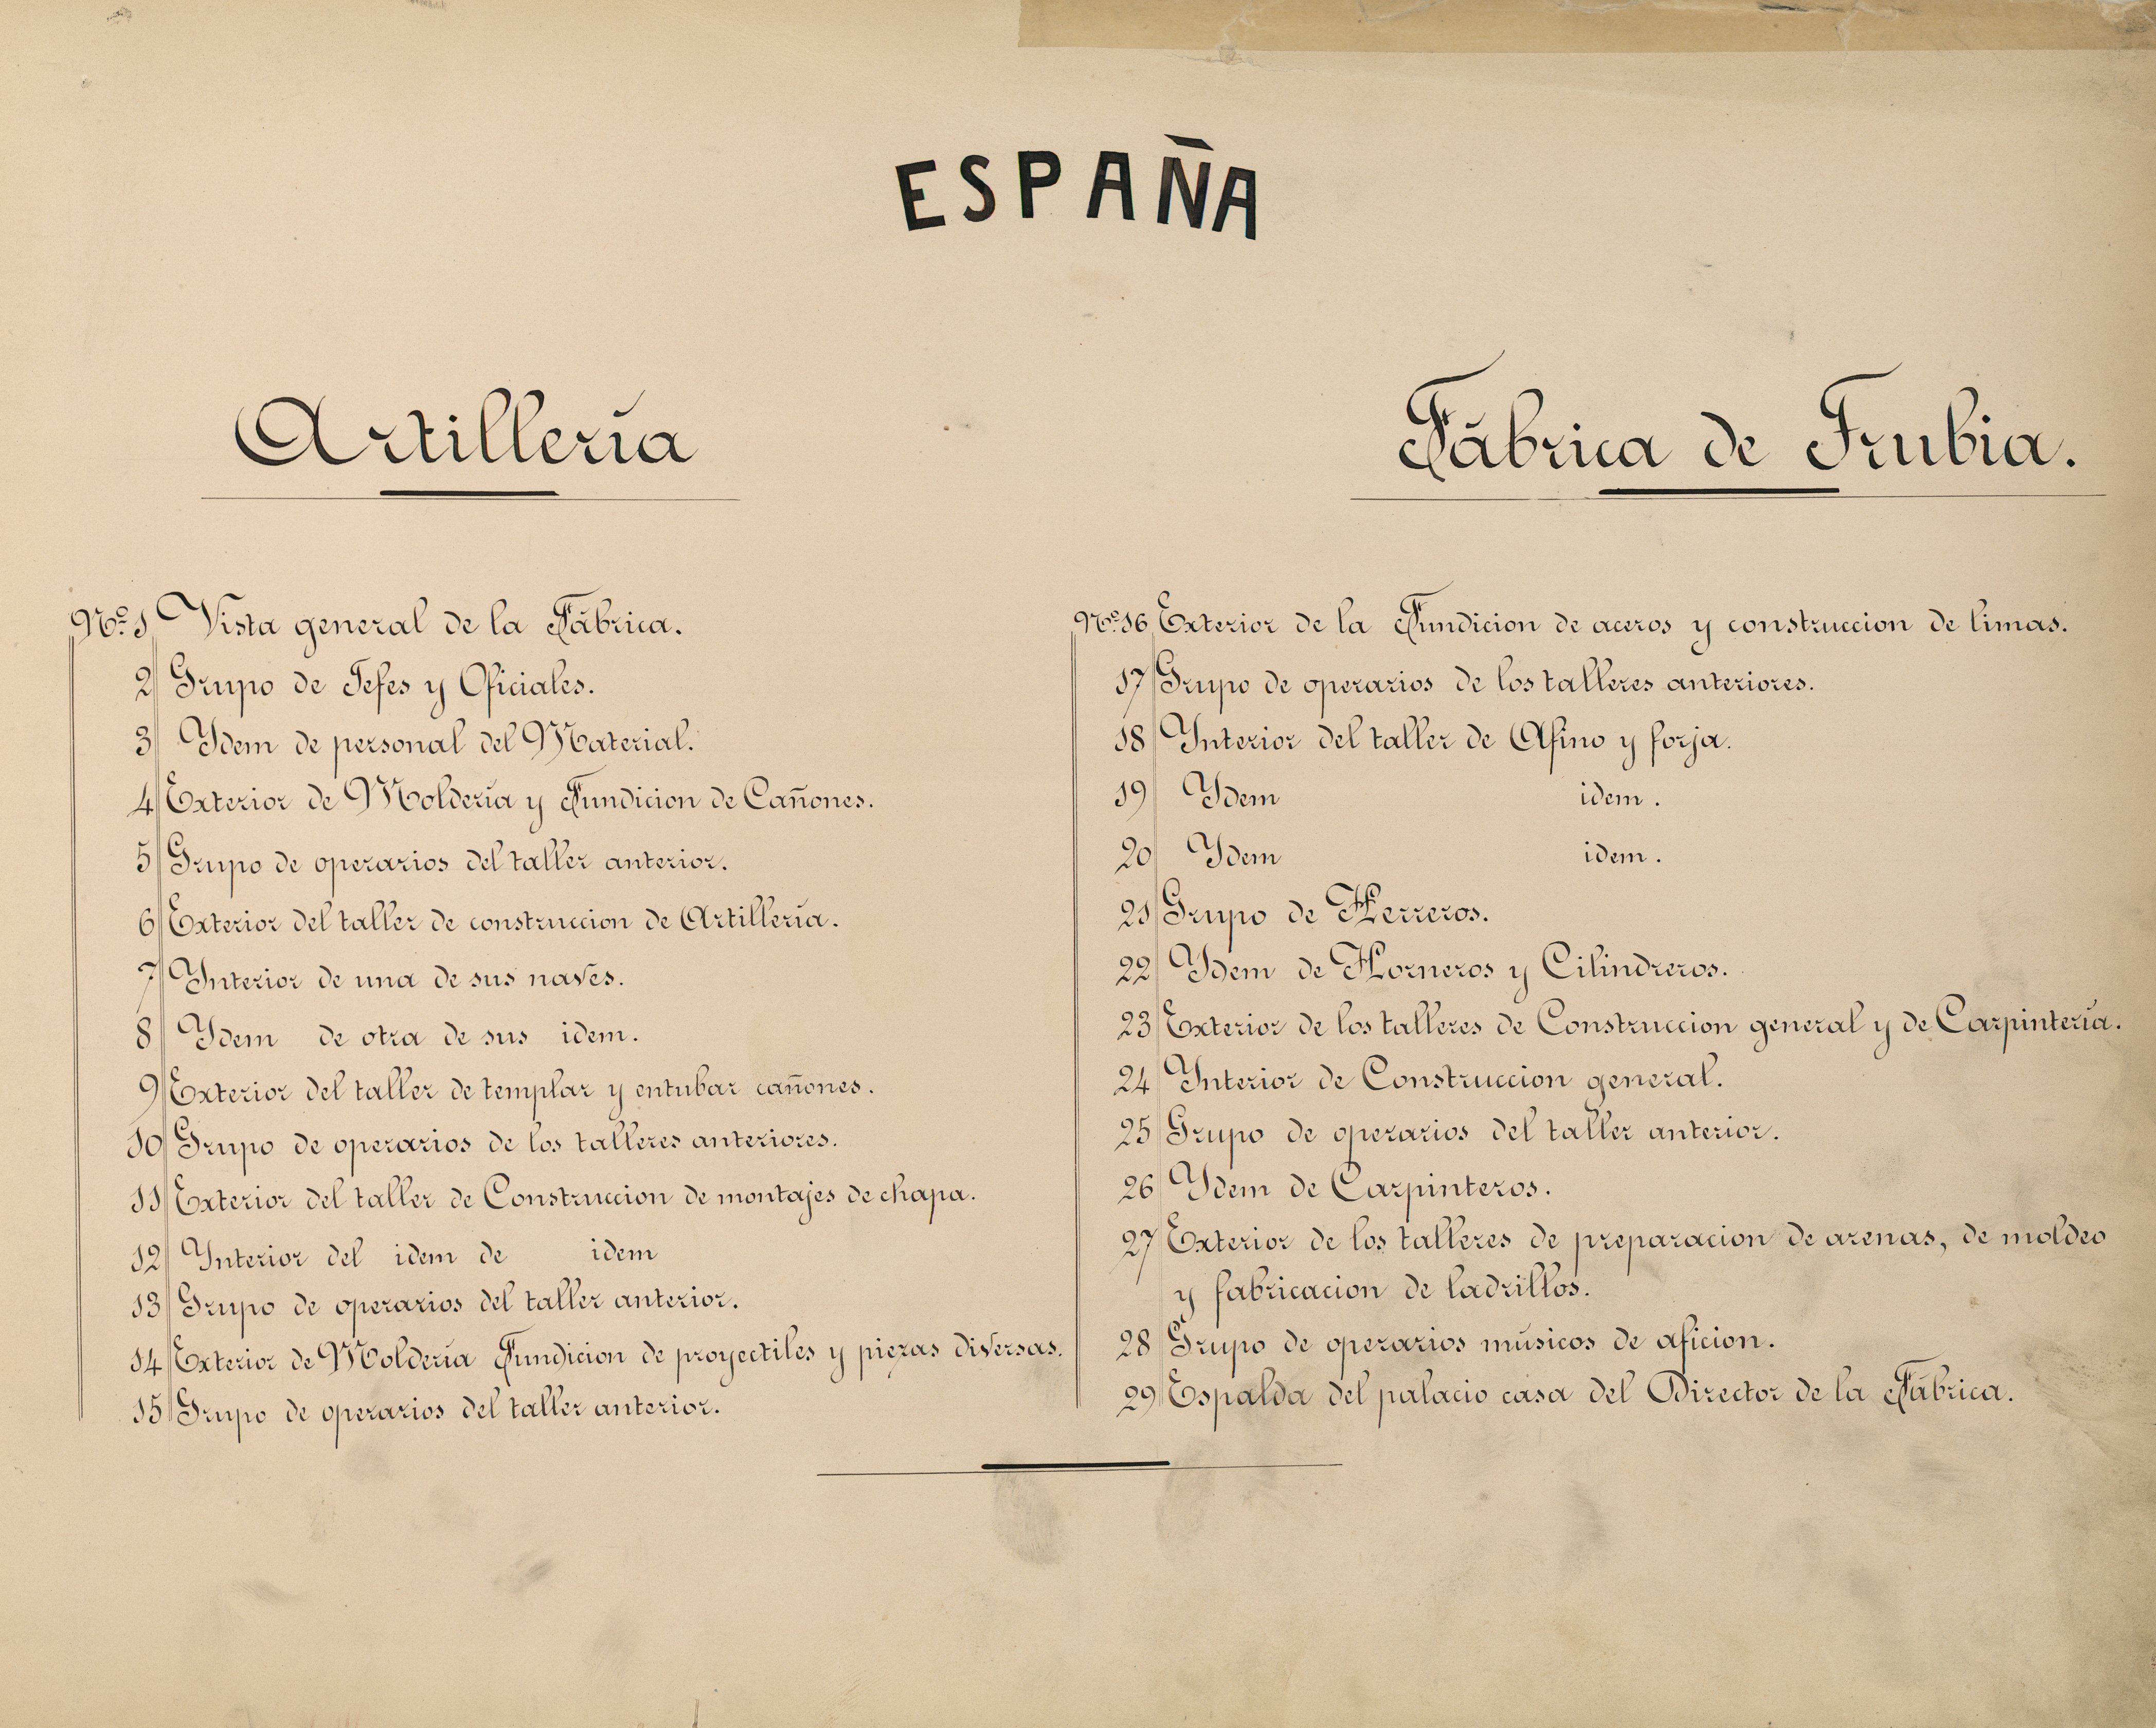 ESPAÑA
Artillería
Fábrica de Trubia.
Nº 1 Vista general de la Fábrica.
2 Grupo de Jefes y Oficiales.
3 Ydem de personal del Material.
4 Exterior de Moldería y Fundicion de Cañones.
5 Grupo de operarios del taller anterior.
6 Exterior del taller de construccion de Artillería.
7 Ynterior de una de sus naves.
8 Ydem de otra de sus idem.
9 Exterior del taller de templar y entubar cañones.
10 Grupo de operarios de los talleres anteriores.
11 Exterior del taller de Construccion de montajes de chapa.
12 Ynterior del idem de idem
13 Grupo de operarios del taller anterior.
14 Exterior de Moldería Fundicion de proyectiles y piezas diversas.
15 Grupo de operarios del taller anterior.
Nº 16 Exterior de la Fundicion de aceros y construccion de limas.
17 Grupo de operarios de los talleres anteriores.
18 Ynterior del taller de Afino y forja.
19 Ydem idem.
20 Ydem idem.
21 Grupo de Herreros.
22 Ydem de Horneros y Cilindreros.
23 Exterior de los talleres de Construccion general y de Carpintería.
24 Ynterior de Construccion general.
25 Grupo de operarios del taller anterior.
26 Ydem de Carpinteros.
27 Exterior de los talleres de preparacion de arenas, de moldeo
y fabricacion de ladrillos.
28 Grupo de operarios músicos de aficion.
29 Espalda del palacio casa del Director de la Fábrica.